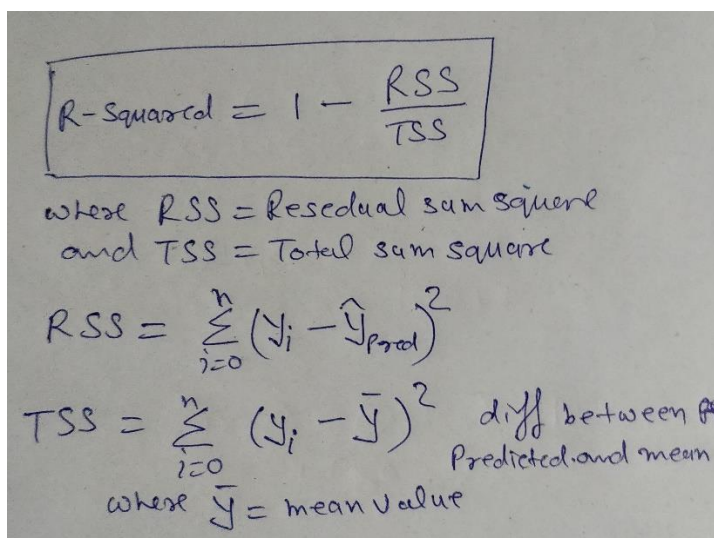 R-Squared = 1 - RSS/TSS
where RSS = Resedual sum square
and TSS = Total sum square
RSS = n∑i=0 (yi - ŷpred)²
TSS = n∑i=0 (yi - ȳ)² diff between
Predicted.and mean
where ȳ = mean value